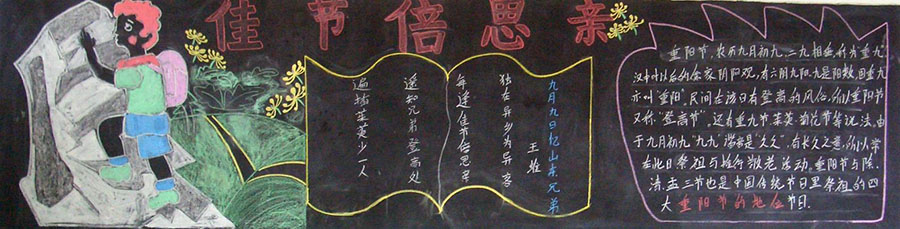 佳节倍思亲
九月九日忆山东兄弟
王维
独在异乡为异客
每逢佳节倍思亲
遥知兄弟登高处
遍插茱萸少一人
重阳节,农历九月初九,二九相重,称为"重九"
汉中叶以后的儒家阴阳观,有六阴九阳,九是阳数,固重九
亦叫"重阳",民间在该日有登高的风俗,所以重阳节
又称"登高节",还有重九节、茱萸、菊花节等说法,由
于九月初九"九九"谐音是"久久",有长久之意,所以常
在此日祭祖与推行敬老活动,重阳节与除、
清、盂三节也是中国传统节日里祭祖的四
大重阳节的地位节日.